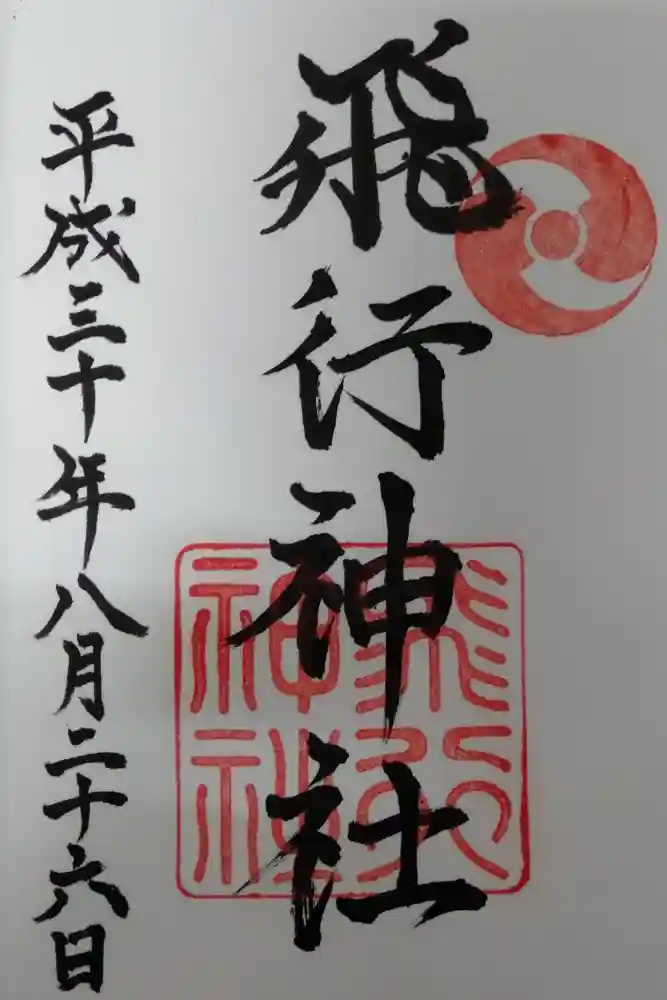 飛行神社
平成三十年八月二十六日
飛行
神社